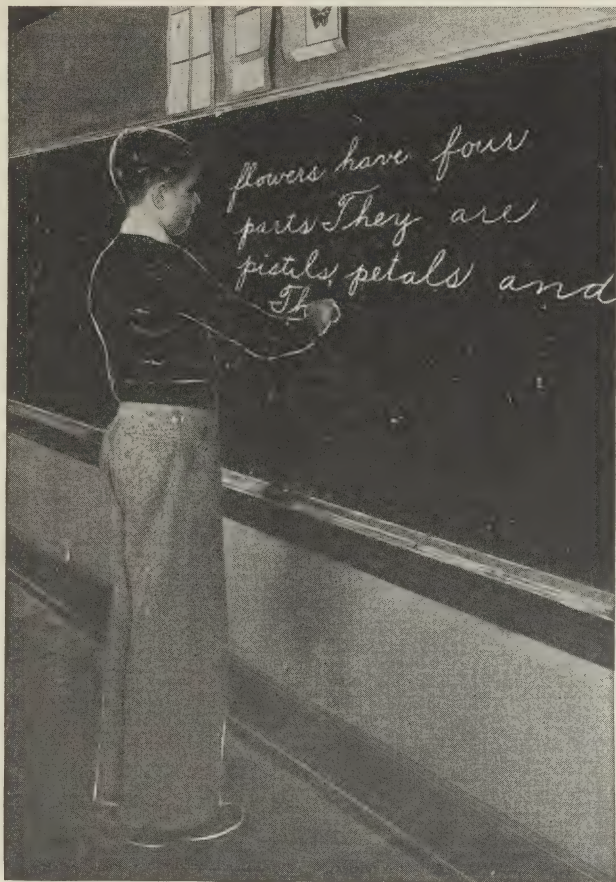 flowers have four
parts They are
pistils, petals and
Th